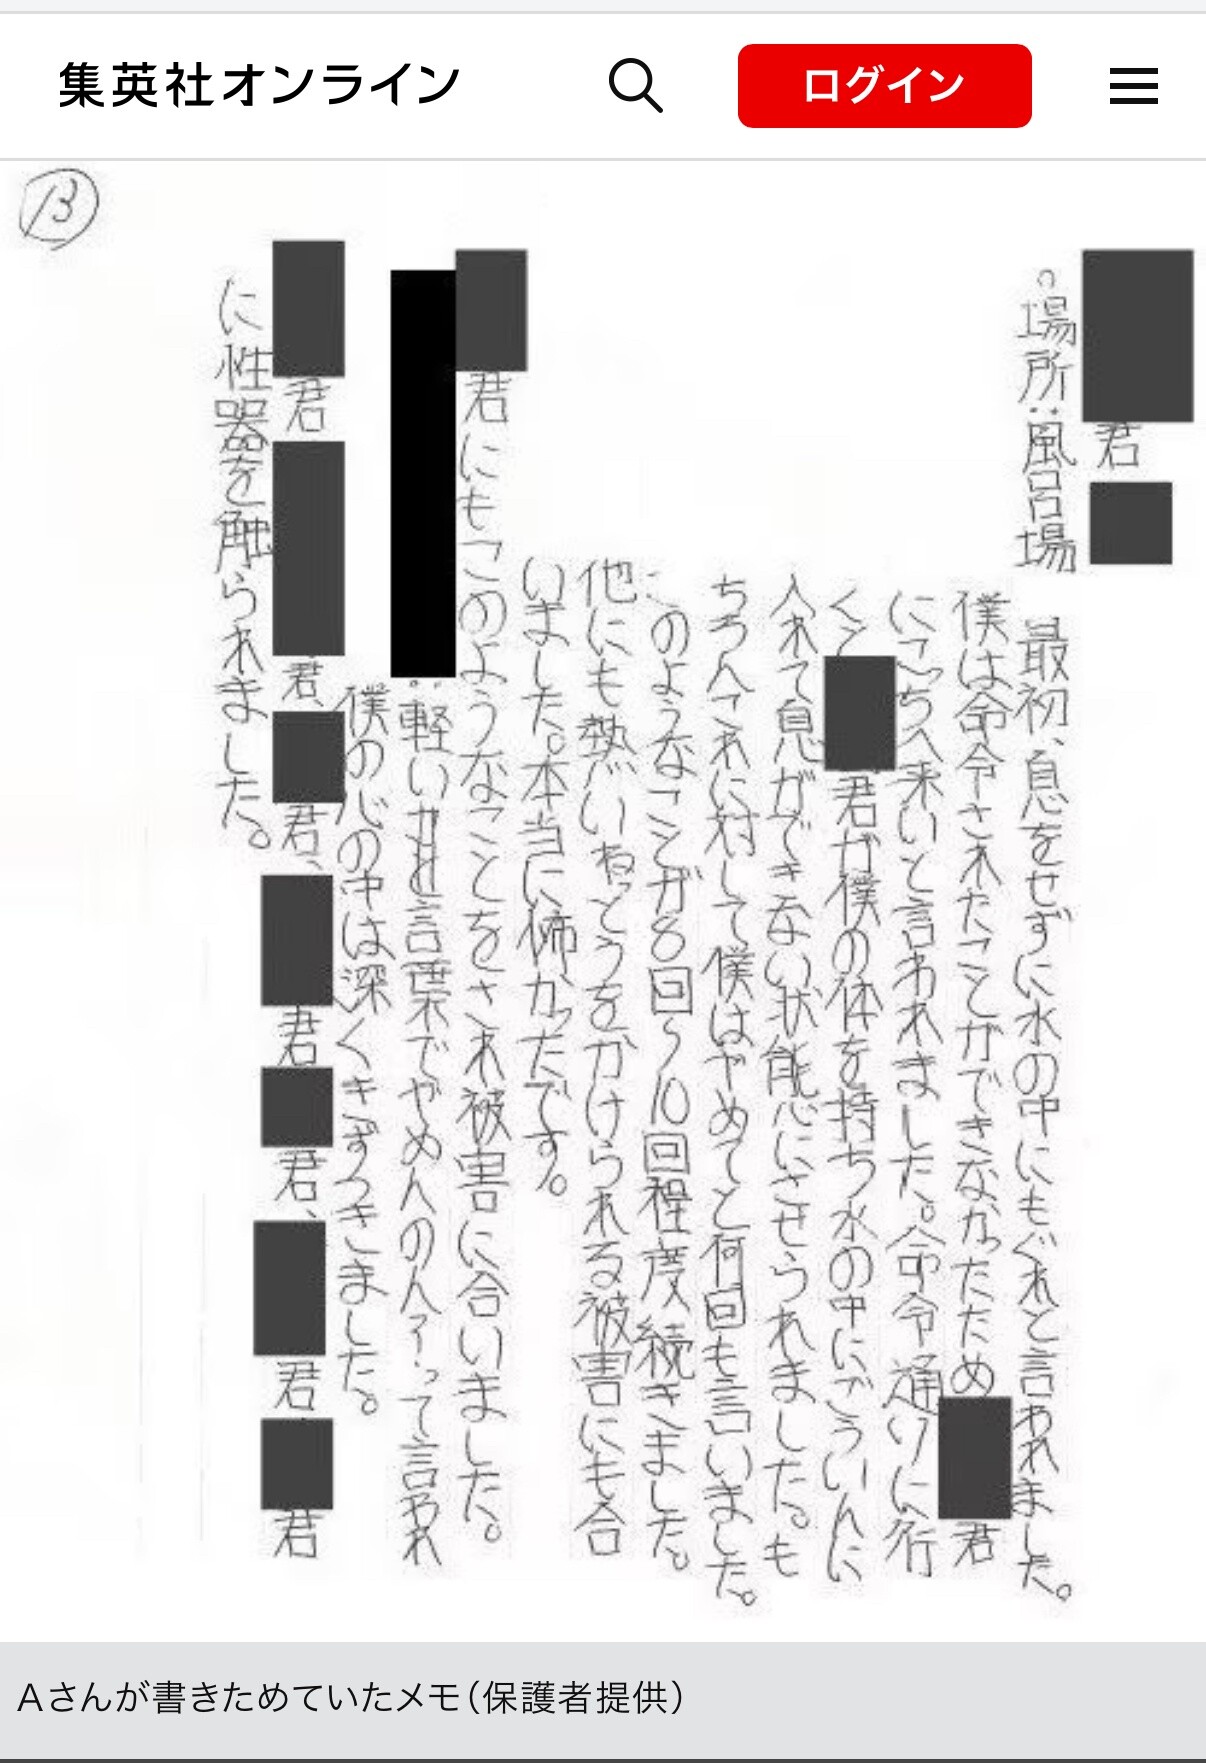 集英社オンライン
ログイン
13
君
。場所:風呂場
最初、息をせずに水の中にもぐれと言われました。
僕は命令されたことができなかったため 君
にこっちへ来いと言われました。命令通りに行
くと 君が僕の体を持ち水の中にごういんに
入れて息ができない状態にさせられました。も
ちろんこれに対して僕はやめてと何回も言いました。
このようなことが8回~10回程度続きました。
他にも熱いねっとうをかけられる被害にも合
いました。本当に怖かったです。
君にもこのようなことをされ被害に合いました。
:軽い 言葉でやめんのん?って言われ
僕の心の中は深くきずつきました。
君 君、 君、 君 君、 君 君
に性器を触られました。
Aさんが書きためていたメモ(保護者提供)